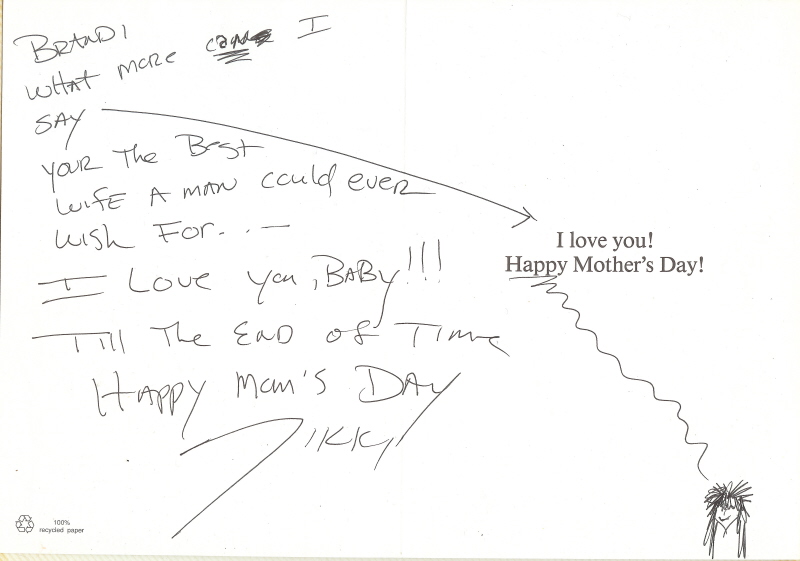 BRANDI
WHAT MORE can I
SAY
YOUR THE BEST
WIFE A MAN could ever
WISH FOR. . . —
I LOVE you, BABY!!!
Till THE END of Time
HAPPY Mom's DAY
Nikki
I love you!
Happy Mother's Day!
100%
recycled paper